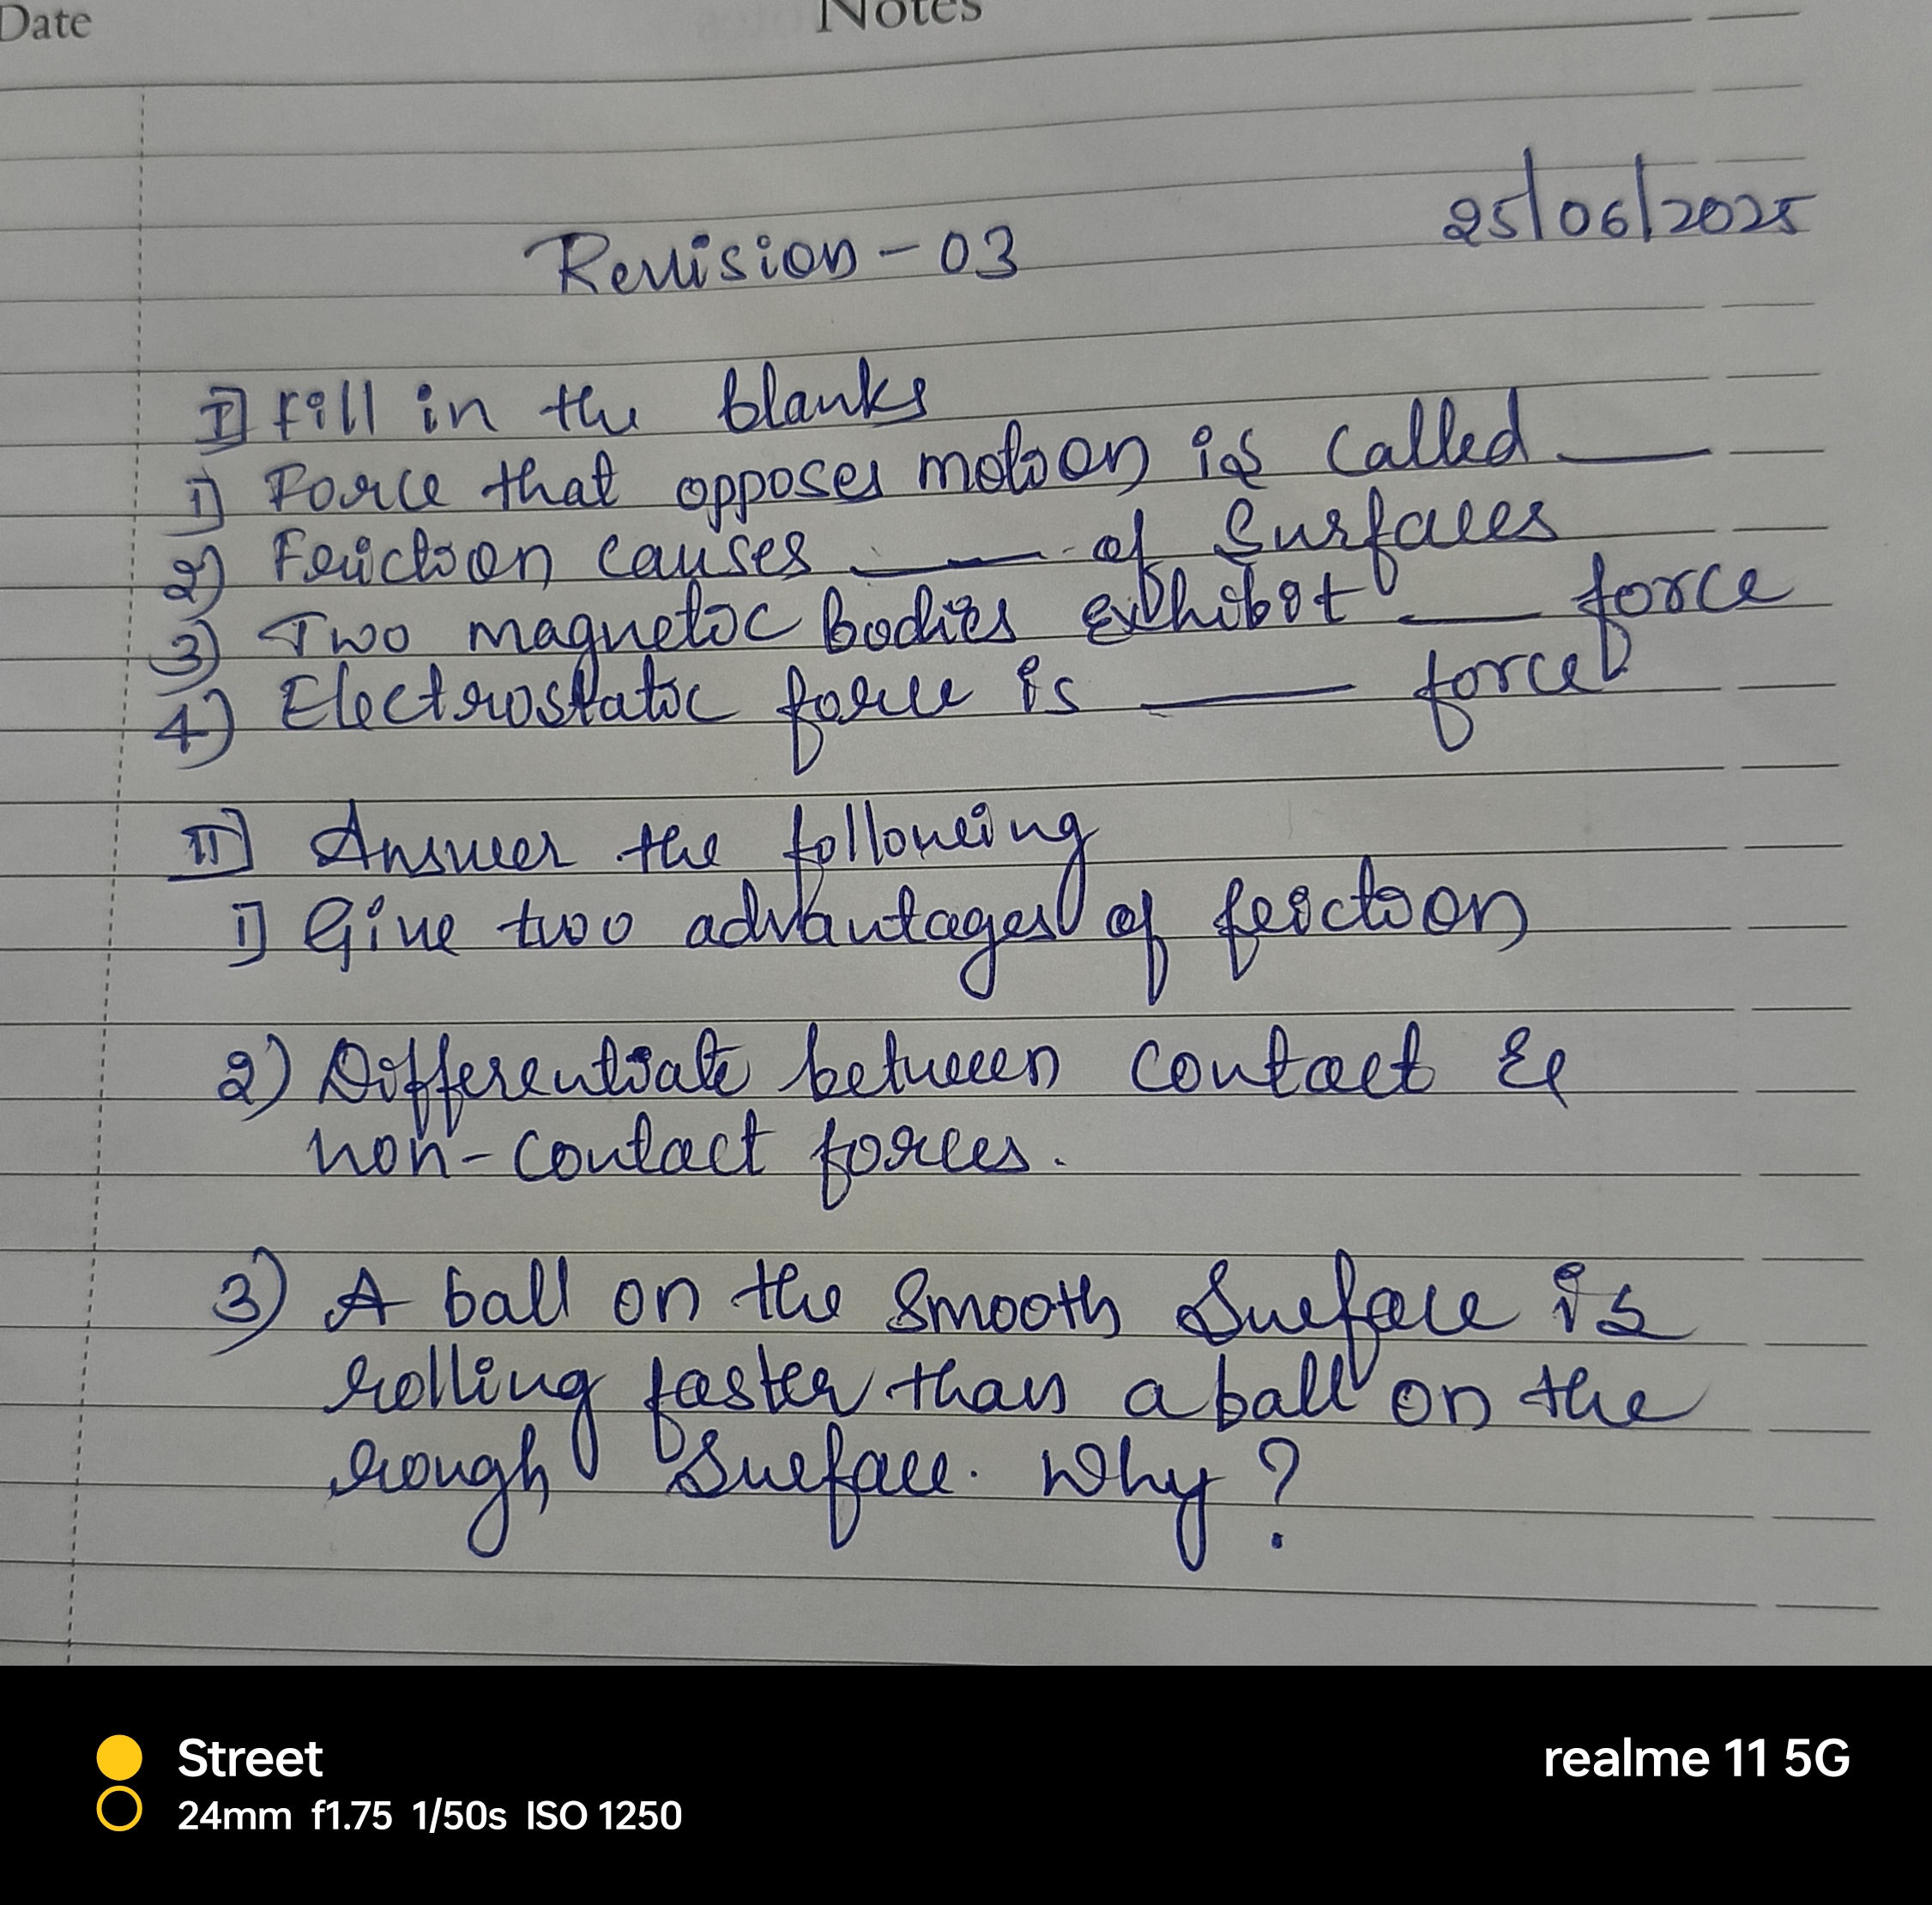 Date
Notes
25/06/2025
Revision - 03
I] Fill in the blanks
1) Force that opposes motion is called ____
2) Friction causes ____ of Surfaces
3) Two magnetic bodies exhibit ____ force
4) Electrostatic force is ____ force
II] Answer the following
1) Give two advantages of friction
2) Differentiate between contact &
non-contact forces.
3) A ball on the smooth Surface is
rolling faster than a ball on the
rough Surface. Why?
Street
realme 11 5G
24mm f1.75 1/50s ISO 1250